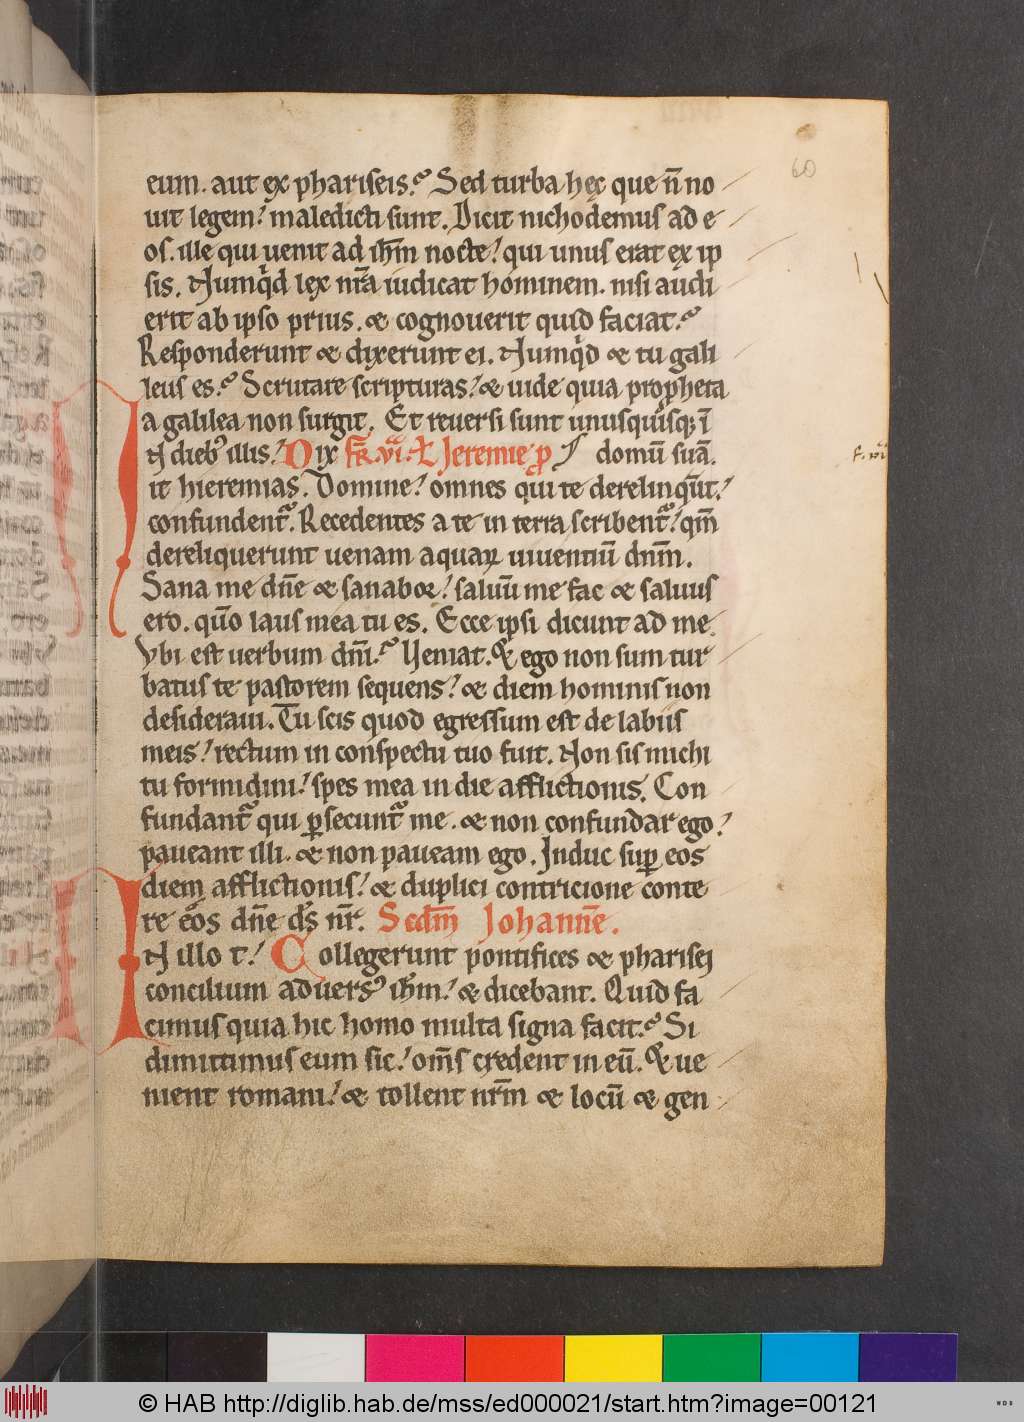 60
eum. aut ex phariseis. Sed turba hęc que n̄ no
uit legem! maledicti sunt. Dicit nichodemus ad e
os. ille qui uenit ad ih̄m nocte! qui unus erat ex ip
sis. Numq̇d lex nr̄a iudicat hominem. nisi audi
erit ab ipso prius. & cognouerit quid faciat.
Responderunt & dixerunt ei. Numq̇d & tu gali
leus es. Scrutare scripturas! & uide quia propheta
a galilea non surgit. Et reuersi sunt unusquisq; ī
N dieb' illis! Dix fr̄. vi. L Jeremie p domū suā.
f. vi
it hieremias. Domine! omnes qui te derelinqūt!
confundent̄. Recedentes a te in terra scribent̄! qm̄
dereliquerunt uenam aquaꝝ uiuentiū dnm̄.
Sana me dn̄e & sanabor! saluū me fac & saluus
ero. qūo laus mea tu es. Ecce ipsi dicunt ad me
Vbi est uerbum dn̄i. Ueniat. & ego non sum tur
batus te pastorem sequens! & diem hominis non
desideraui. Tu scis quod egressum est de labiis
meis! rectum in conspectu tuo fuit. Non sis michi
tu formidini! spes mea in die afflictionis. Con
fundant̄ qui ꝑsecunt̄ me. & non confundar ego!
paueant illi. & non paueam ego. Induc suꝑ eos
diem afflictionis! & duplici contricione conte
re eos dn̄e ds̄ nr̄. Scdm̄ Johanne̅.
IN illo t! Collegerunt pontifices & pharisei
concilium aduers' ih̄m! & dicebant. Quid fa
cimus quia hic homo multa signa facit. Si
dimittimus eum sic! om̄s credent in eū. & ue
nient romani! & tollent nr̄m & locū & gen
© HAB http://diglib.hab.de/mss/ed000021/start.htm?image=00121